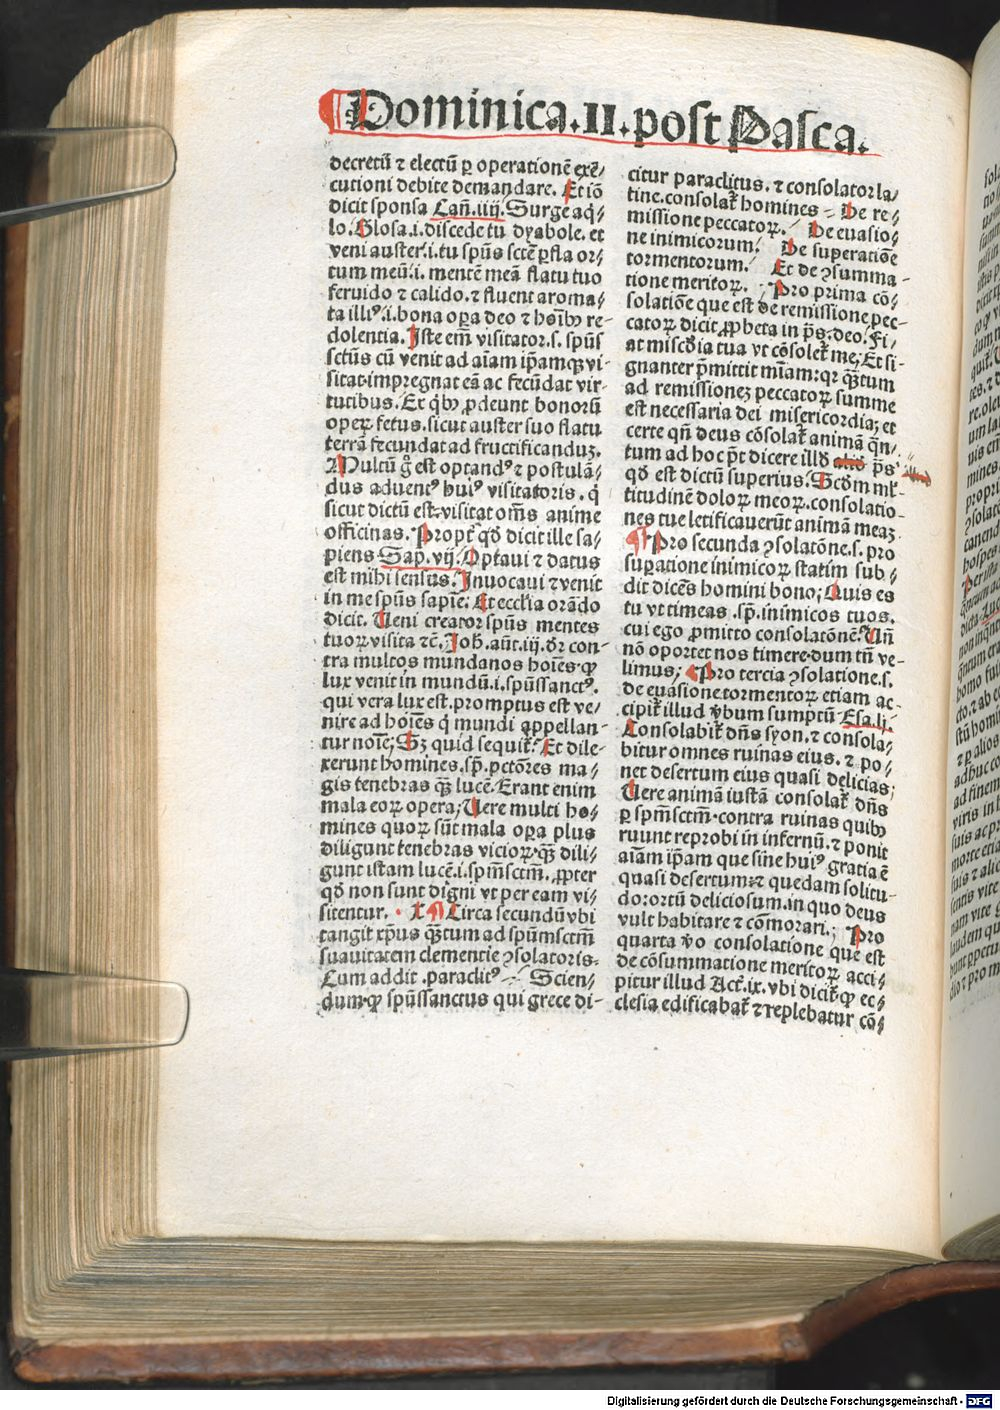 Dominica.II.post Pasca.
decretū ⁊ electū ꝑ operationē exē⸗
cutioni debite demandare. Et iō
dicit sponsa Cañ.iiij. Surge aq̄⸗
lo. Glosa.i.discede tu dyabole. et
veni auster.i.tu spūs sctē ꝑfla or⸗
tum meū.i. mentē meā flatu tuo
feruido ⁊ calido.⁊ fluent aroma⸗
ta illiꝰ.i.bona oꝑa deo ⁊ hoīb⁹ re⸗
dolentia. Iste em̄ visitator.s. spūs
sctūs cū venit ad aīam ip̄amqꝫ vi⸗
sitat.impregnat eā ac fecūdat vir⸗
tutibus. Et q̄b⁹ ꝓdeunt bonorū
operꝝ fetus.sicut auster suo flatu
terrā fecundat ad fructificanduꝫ.
Multū g̃ est optandꝰ ⁊ postulā⸗
dus aduentꝰ huiꝰ visitatoris. q̄
sicut dictū est.visitat om̄s anime
officinas. Propt̄ qđ dicit ille sa⸗
piens Sap.vij. Optaui ⁊ datus
est mihi sensus. Inuocaui ⁊ venit
in me spūs sapīe. Et ecclīa orādo
dicit. Veni creator spūs mentes
tuoꝝ visita ⁊c. Joh̄.aūt.iij. dr̄ con⸗
tra multos mundanos hoīes.ꝙ
lux venit in mundū.i.spūssanctꝰ.
qui vera lux est.promptus est ve⸗
nire ad hoīes q̄ mundi appellan⸗
tur noīe; Sꝫ quid sequit̄? Et dile⸗
xerunt homines.sp̄. pctōres ma⸗
gis tenebras q̄ꝫ lucē. Erant enim
mala eoꝝ opera; Vere multi ho⸗
mines quoꝝ sūt mala oꝑa plus
diligunt tenebras vicioꝝ.q̄ꝫ dili⸗
gunt istam lucē.i.spm̄sctm̄. ꝓpter
qđ non sunt digni vt per eam vi⸗
sitentur. ¶ Circa secundū vbi
tangit xp̄us q̄ꝫtum ad spūmsctm̄
suauitatem clementie ꝯsolatoris.
Cum addit .paraclitꝰ Scien⸗
dum.ꝙ spūssanctus qui grece di⸗
citur paraclitus. ⁊ consolator la⸗
tine.consolat̄ homines De re⸗
missione peccatoꝝ. De euasio⸗
ne inimicorum. De superatiōe
tormentorum. Et de ꝯsumma⸗
tione meritoꝝ. Pro prima cō⸗
solatiōe que est de remissione pec⸗
catoꝝ dicit ꝓpheta in ps̄.deo. Fi⸗
at misc̄dia tua vt cōsolet̄ me; Et si⸗
gnanter p̄mittit mīam:qꝛ q̄ꝫtum
ad remissioneꝫ peccatoꝝ summe
est necessaria dei misericordia; et
certe qn̄ deus cōsolat̄ animā q̄n⸗
tum ad hoc pt̄ dicere illđ ps̄
qđ est dictū superius. Scđm ml̄⸗
titudinē doloꝝ meoꝝ.consolatio⸗
nes tue letificauerūt animā meaꝫ
¶ Pro secunda ꝯsolatōne.s. pro
suꝑatione inimicoꝝ statim sub⸗
dit dicēs homini bono; Quis es
tu vt timeas .sp̄. inimicos tuos.
cui ego ꝓmitto consolatōnē? Vn̄
nō oportet nos timere.dum tn̄ ve⸗
limus; Pro tercia ꝯsolatione.s.
de euasione.tormentoꝝ etiam ac⸗
cipit̄ illud v̄bum sumptū Esa.li.
Consolabit̄ dn̄s syon.⁊ consola⸗
bitur omnes ruinas eius. ⁊ po⸗
net desertum eius quasi delicias;
Vere animā iustā consolat̄ dn̄s
ꝑ spm̄sctm̄.contra ruinas quib⁹
ruunt reprobi in infernū.⁊ ponit
aīam ip̄am que sine huiꝰ gratia ē
quasi desertum ⁊ quedam solitu⸗
do.ortū deliciosum.in quo deus
vult habitare ⁊ cōmorari; Pro
quarta v̄o consolatione que est
de cōsummatione meritoꝝ acci⸗
pitur illud Act̄.ix. vbi dicit̄.ꝙ ec⸗
clesia edificabat̄ ⁊ replebatur cō⸗
Digitalisierung gefördert durch die Deutsche Forschungsgemeinschaft - DFG